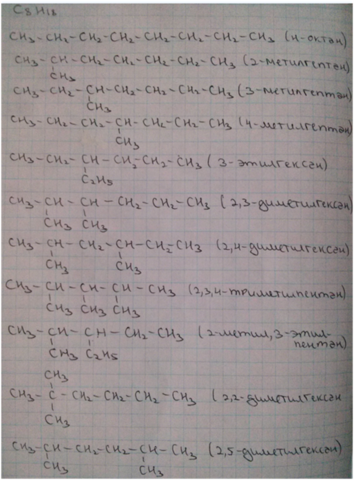 C8H18
CH3-CH2-CH2-CH2-CH2-CH2-CH2-CH3 (н-октан)
CH3-CH-CH2-CH2-CH2-CH2-CH3 (2-метилгептан)
CH3
CH3-CH2-CH-CH2-CH2-CH2-CH3 (3-метилгептан)
CH3
CH3-CH2-CH2-CH-CH2-CH2-CH3 (4-метилгептан)
CH3
CH3-CH2-CH-CH2-CH2-CH3 (3-этилгексан)
C2H5
CH3-CH-CH-CH2-CH2-CH3 (2,3-диметилгексан)
CH3 CH3
CH3-CH-CH2-CH-CH2-CH3 (2,4-диметилгексан)
CH3 CH3
CH3-CH-CH-CH-CH3 (2,3,4-триметилпентан)
CH3 CH3 CH3
CH3-CH-CH-CH2-CH3 (2-метил,3-этил-
CH3 C2H5 пентан)
CH3
CH3-C-CH2-CH2-CH2-CH3 (2,2-диметилгексан
CH3
CH3-CH-CH2-CH2-CH-CH3 (2,5-диметилгексан)
CH3 CH3